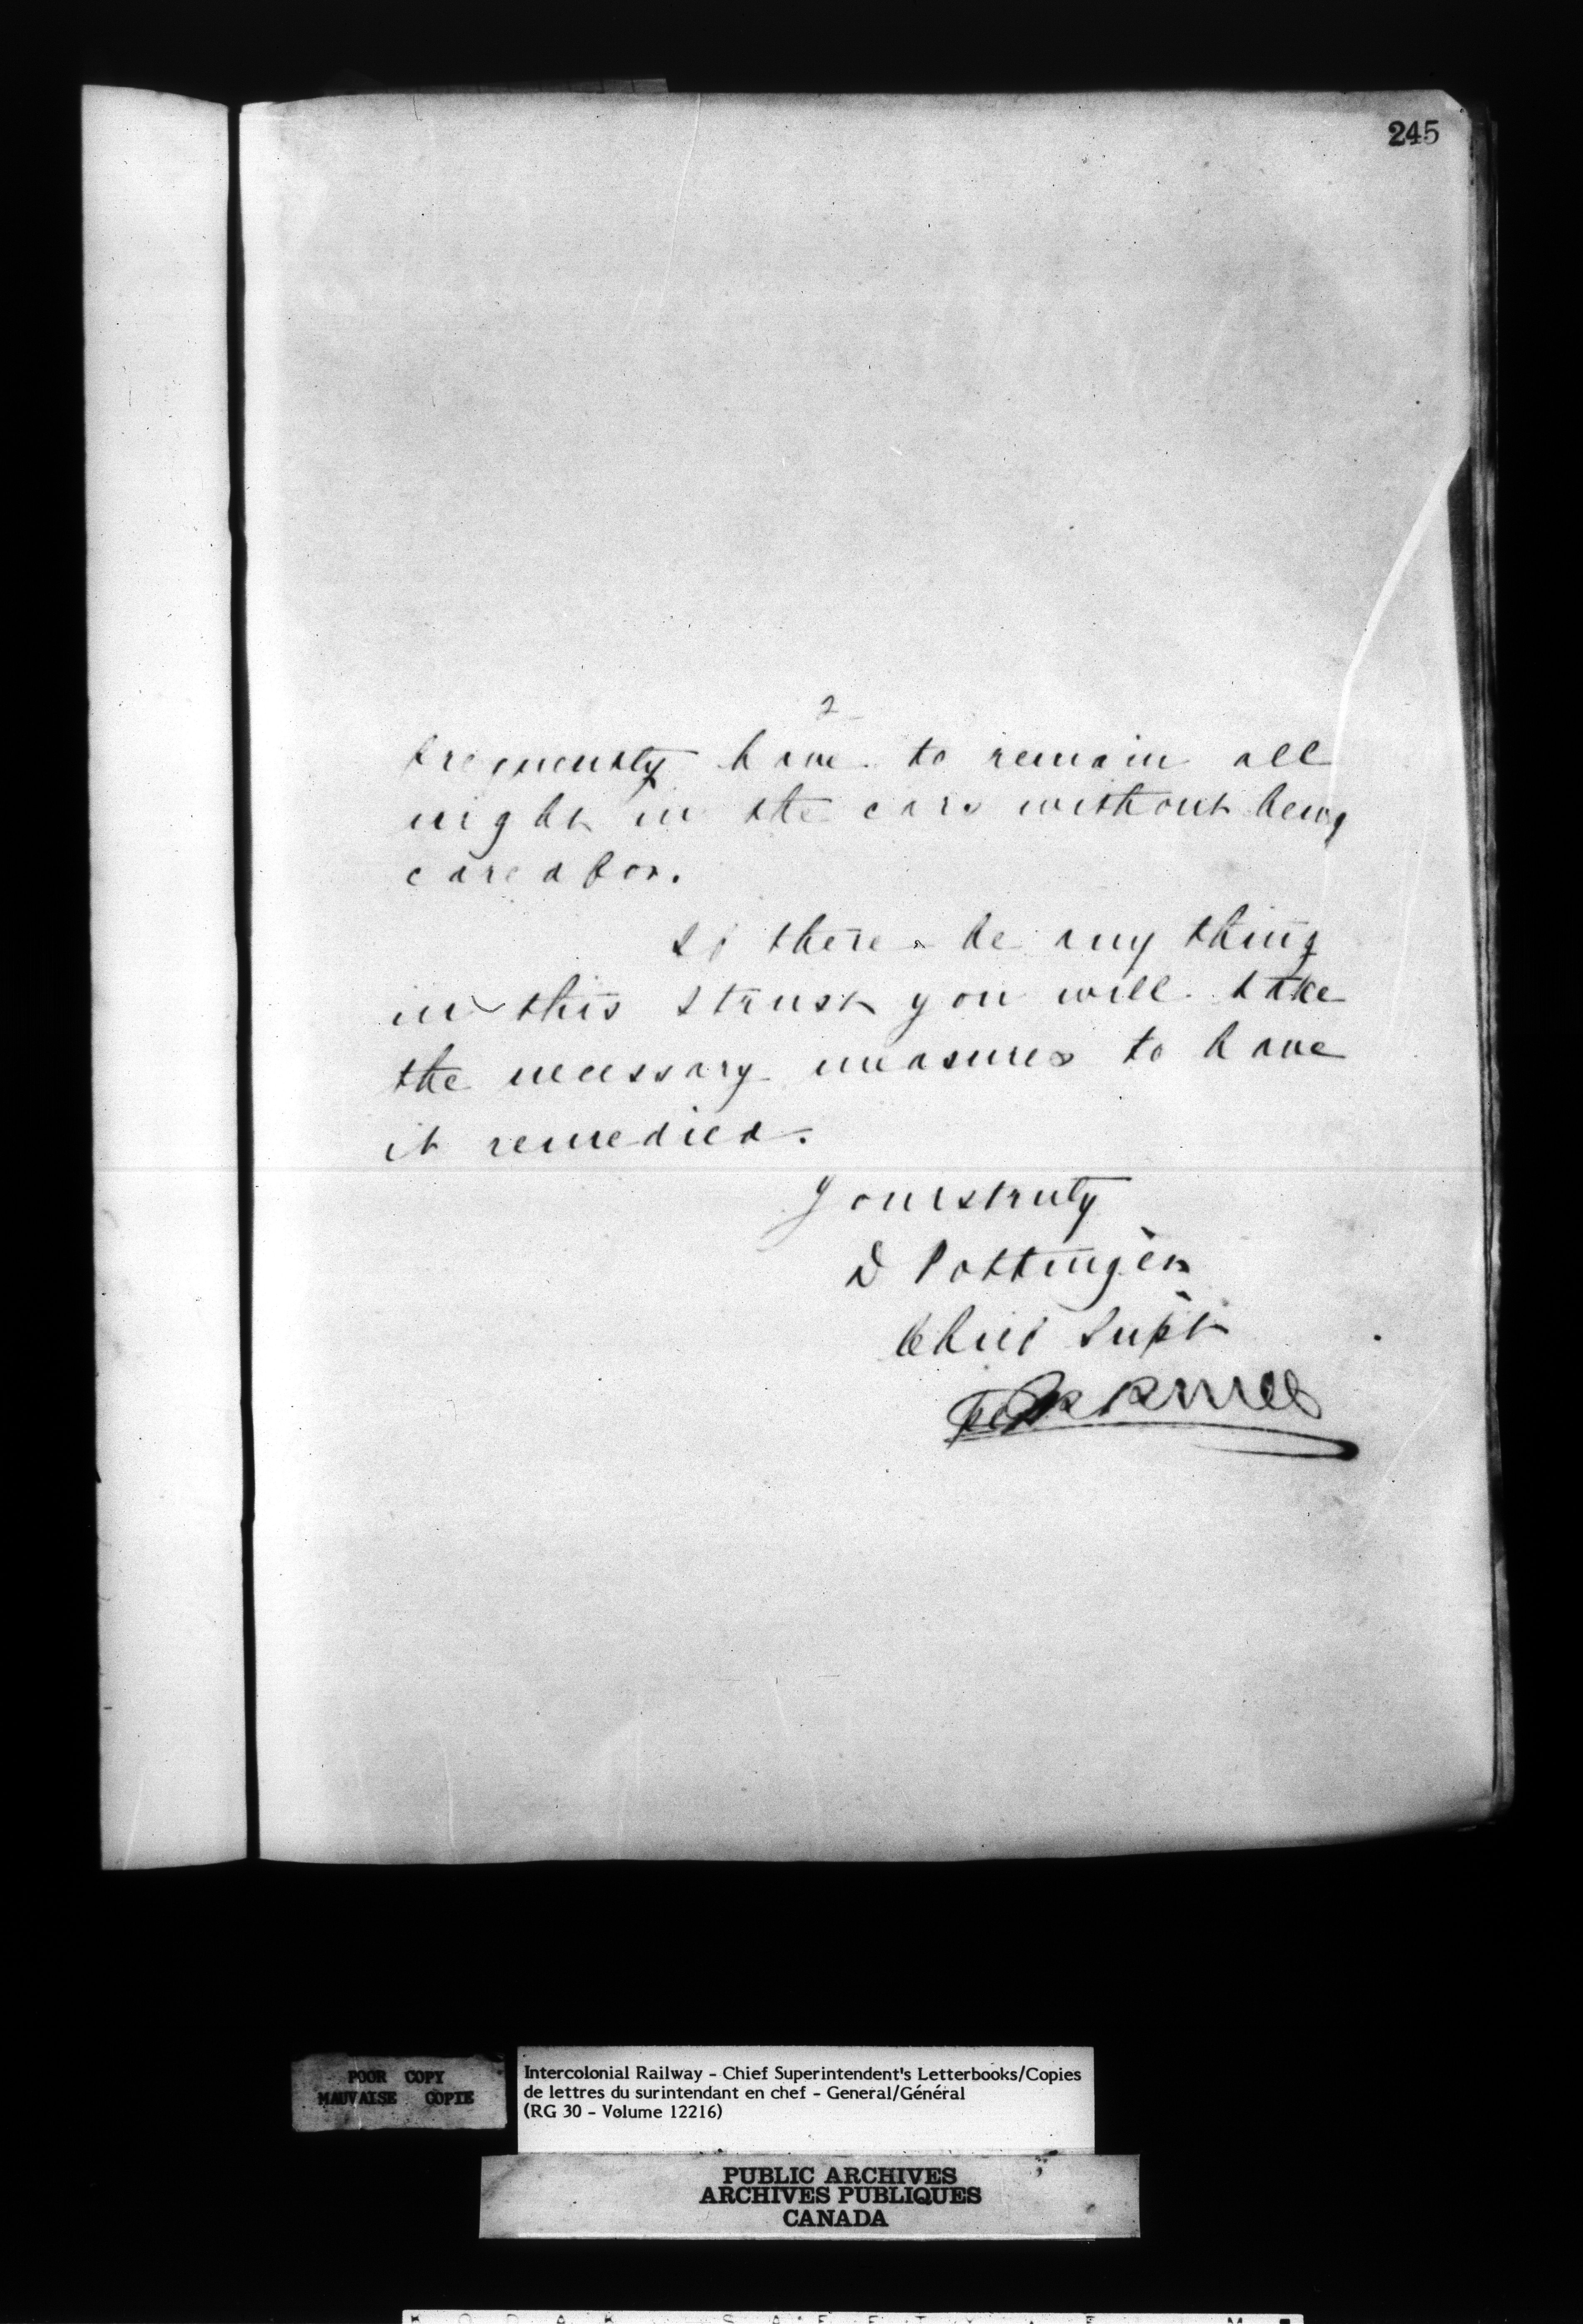 245
2
frequently have to remain all
night in the cars without being
cared for.
If there be any thing
in this I trust you will take
the necessary measures to have
it remedied.
Yours truly
D Pottinger
Chief Supt
POOR COPY
MAUVAISE COPIE
Intercolonial Railway - Chief Superintendent's Letterbooks/Copies
de lettres du surintendant en chef - General/Général
(RG 30 - Volume 12216)
PUBLIC ARCHIVES
ARCHIVES PUBLIQUES
CANADA